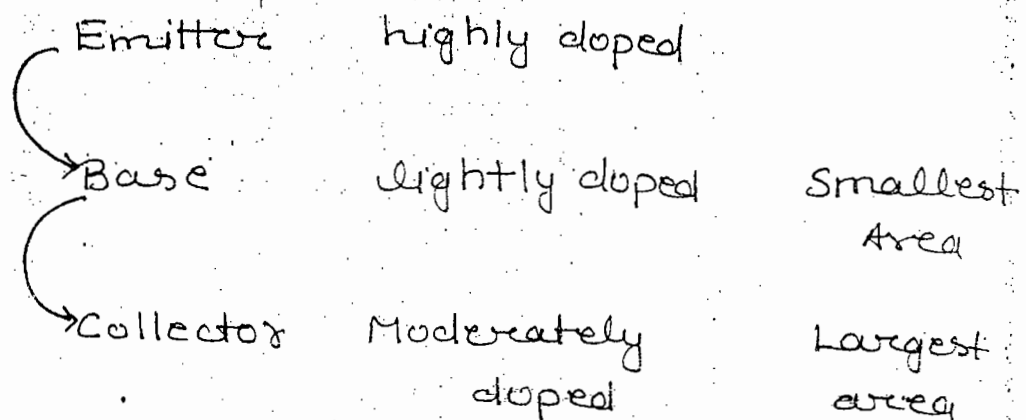 Emitter highly doped
Base lightly doped Smallest
Area
Collector Moderately Largest
doped area